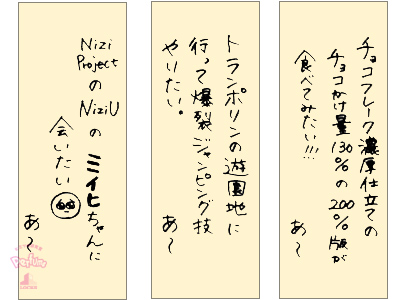 チョコフレーク濃厚仕立ての
チョコかけ量130%の200%版が
食べてみたい!!!
あ〜
トランポリンの遊園地に
行って爆裂ジャンピング技
やりたい。
あ〜
Nizi
Project
の
NiziU
の
ミイヒちゃんに
会いたい
あ〜
Perfume